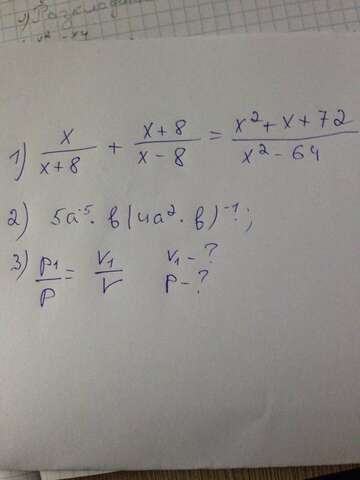 1) x/(x+8) + (x+8)/(x-8) = (x²+x+72)/(x²-64)
2) 5a⁻⁵·в(4a²·в)⁻¹;
3) p₁/p = V₁/V V₁-?
p-?